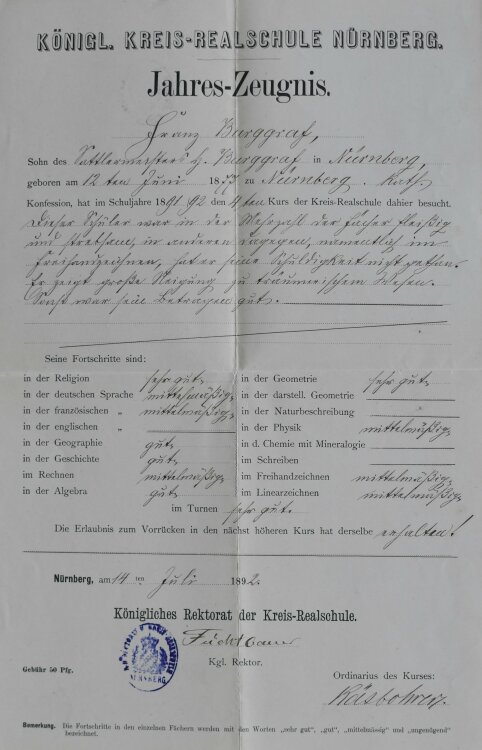 KÖNIGL. KREIS-REALSCHULE NÜRNBERG.
Jahres-Zeugnis.
Franz Burggraf,
Sohn des Sattlermeisters H. Burggraf in Nürnberg,
geboren am 12 ten Juni 18 zu Nürnberg, Kath.
Konfession, hat im Schuljahre 1891/92 den 4ten Kurs der Kreis-Realschule dahier besucht.
Dieser Schüler war in der Mehrzahl der Fächer fleißig
und strebsam, in anderen dagegen, namentlich im
Freihandzeichnen, hat er seine Schuldigkeit nicht gethan.
Er zeigt große Neigung zu träumerischem Wesen.
Sonst war sein Betragen gut.
Seine Fortschritte sind:
in der Religion sehr gut,
in der deutschen Sprache mittelmäßig,
in der französischen „ mittelmäßig,
in der englischen „
in der Geographie gut,
in der Geschichte gut,
im Rechnen mittelmäßig,
in der Algebra gut,
in der Geometrie sehr gut,
in der darstell. Geometrie
in der Naturbeschreibung
in der Physik mittelmäßig,
in d. Chemie mit Mineralogie
im Schreiben
im Freihandzeichnen mittelmäßig,
im Linearzeichnen mittelmäßig,
im Turnen sehr gut.
Die Erlaubnis zum Vorrücken in den nächst höheren Kurs hat derselbe erhalten!
Nürnberg, am 14 ten Juli 1892.
Königliches Rektorat der Kreis-Realschule.
Füchtbauer
Kgl. Rektor.
NÜRNBERG
Gebühr 50 Pfg.
Ordinarius des Kurses:
Bemerkung. Die Fortschritte in den einzelnen Fächern werden mit den Worten „sehr gut", „gut", „mittelmässig" und „ungenügend"
bezeichnet.